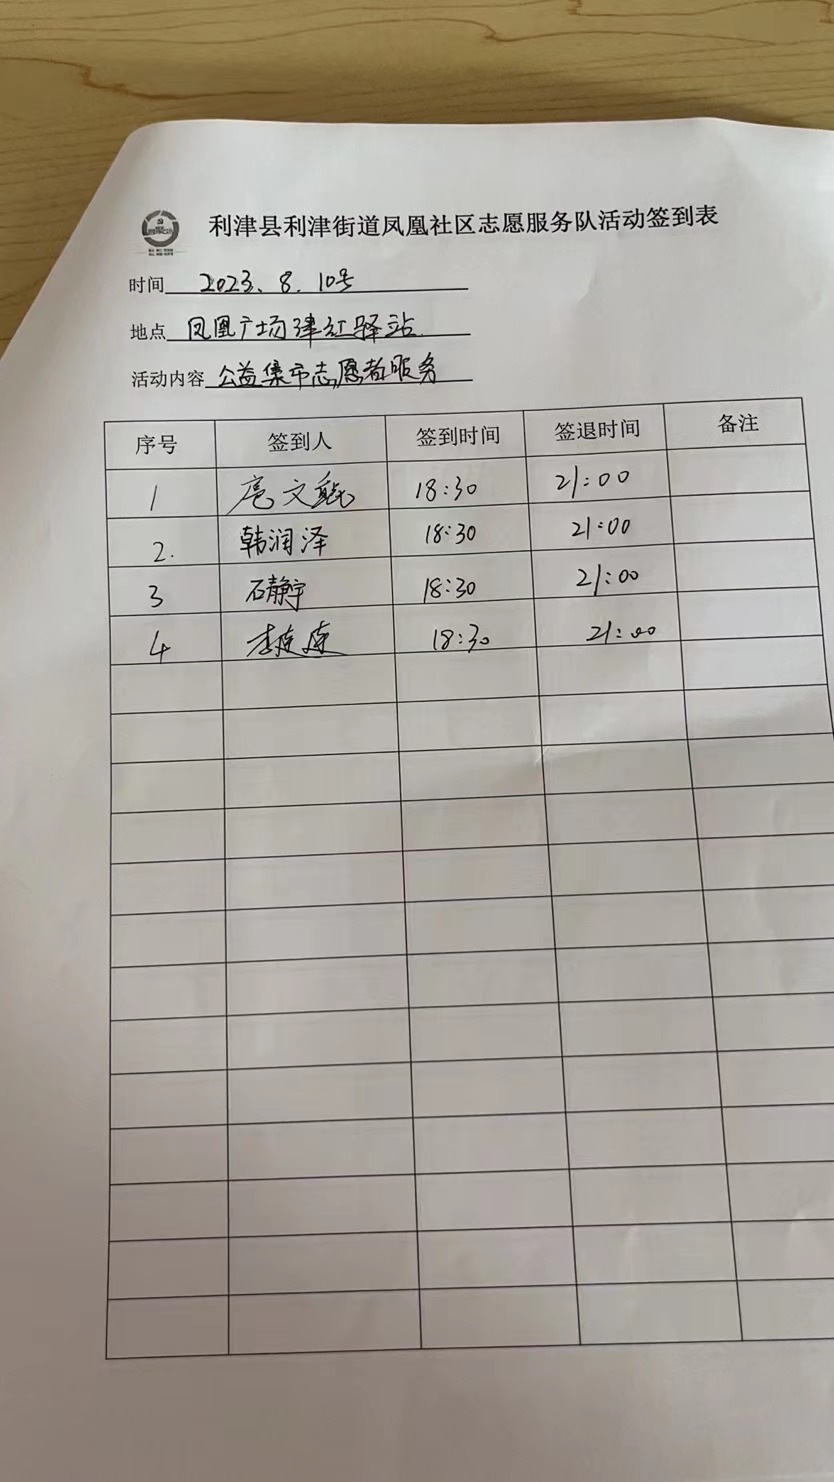 利津县利津街道凤凰社区志愿服务队活动签到表
时间 2023、8、10号
地点 凤凰广场津红驿站
活动内容 公益集市志愿者服务
序号 签到人 签到时间 签退时间 备注
1 文 18:30 21:00
2. 韩润泽 18:30 21:00
3 石静宇 18:30 21:00
4 李 18:30 21:00